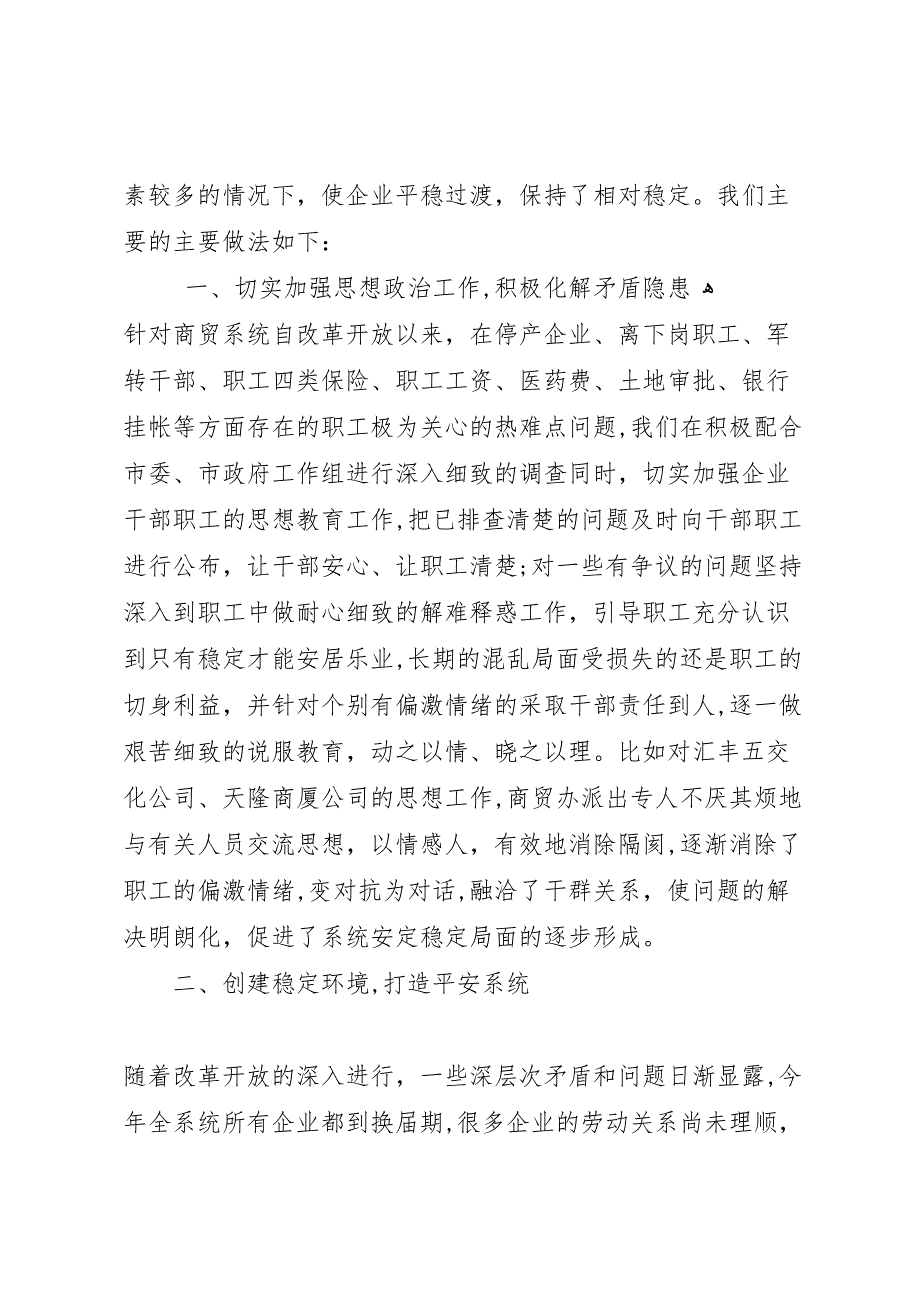 素较多的情况下，使企业平稳过渡，保持了相对稳定。我们主
要的主要做法如下：
一、切实加强思想政治工作,积极化解矛盾隐患ﻫ
针对商贸系统自改革开放以来，在停产企业、离下岗职工、军
转干部、职工四类保险、职工工资、医药费、土地审批、银行
挂帐等方面存在的职工极为关心的热难点问题,我们在积极配合
市委、市政府工作组进行深入细致的调查同时，切实加强企业
干部职工的思想教育工作,把已排查清楚的问题及时向干部职工
进行公布，让干部安心、让职工清楚;对一些有争议的问题坚持
深入到职工中做耐心细致的解难释惑工作，引导职工充分认识
到只有稳定才能安居乐业,长期的混乱局面受损失的还是职工的
切身利益，并针对个别有偏激情绪的采取干部责任到人,逐一做
艰苦细致的说服教育，动之以情、晓之以理。比如对汇丰五交
化公司、天隆商厦公司的思想工作,商贸办派出专人不厌其烦地
与有关人员交流思想，以情感人，有效地消除隔阂,逐渐消除了
职工的偏激情绪,变对抗为对话,融洽了干群关系，使问题的解
决明朗化，促进了系统安定稳定局面的逐步形成。
二、创建稳定环境,打造平安系统
随着改革开放的深入进行，一些深层次矛盾和问题日渐显露,今
年全系统所有企业都到换届期,很多企业的劳动关系尚未理顺，